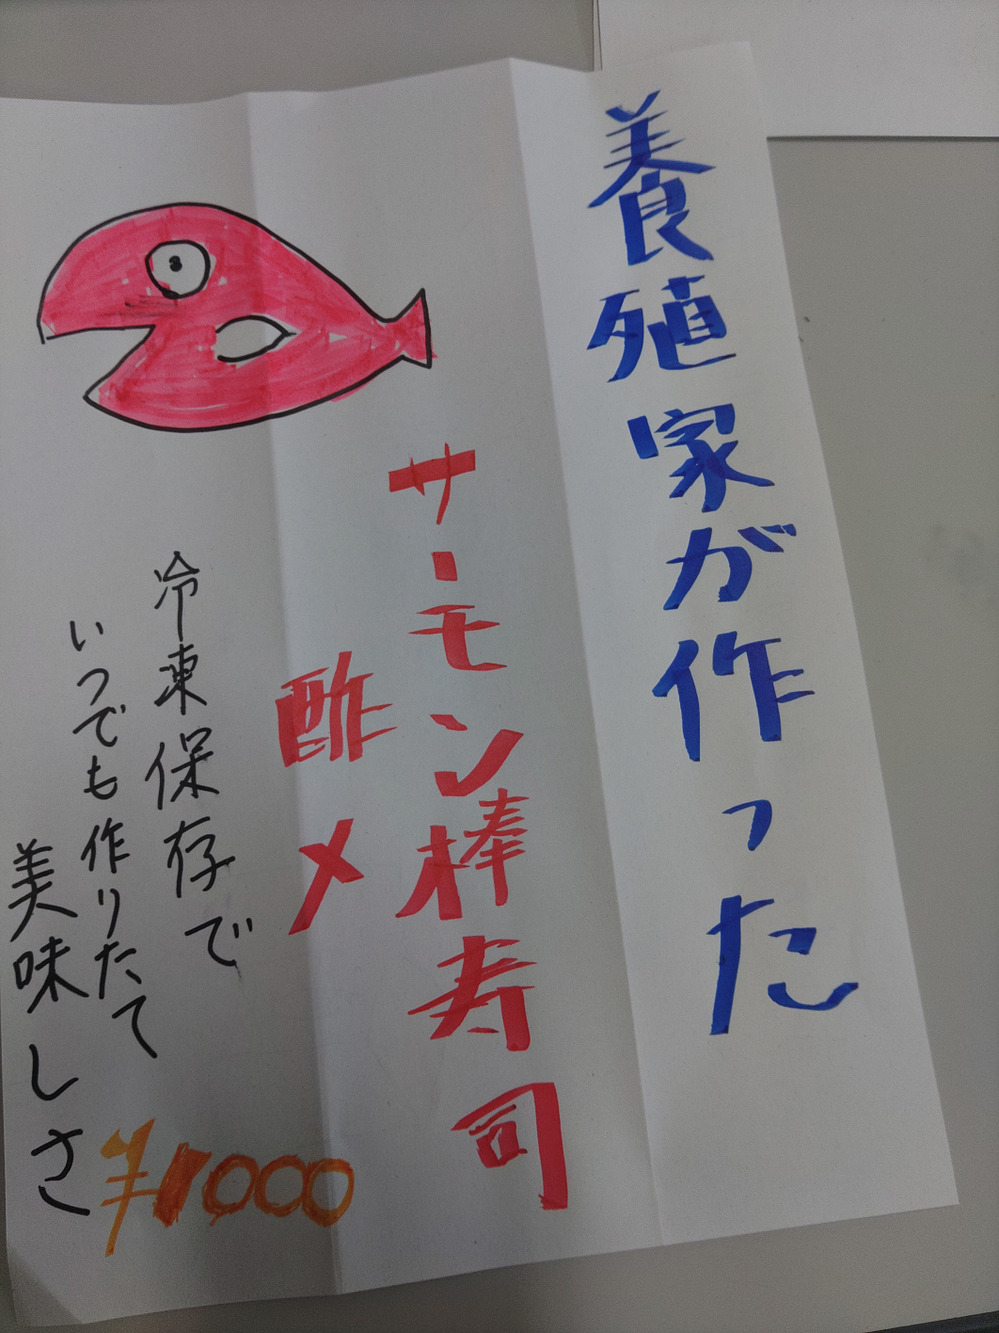 養殖家が作った
サーモン棒寿司
酢〆
冷凍保存で
いつでも作りたて
美味しさ
¥1000